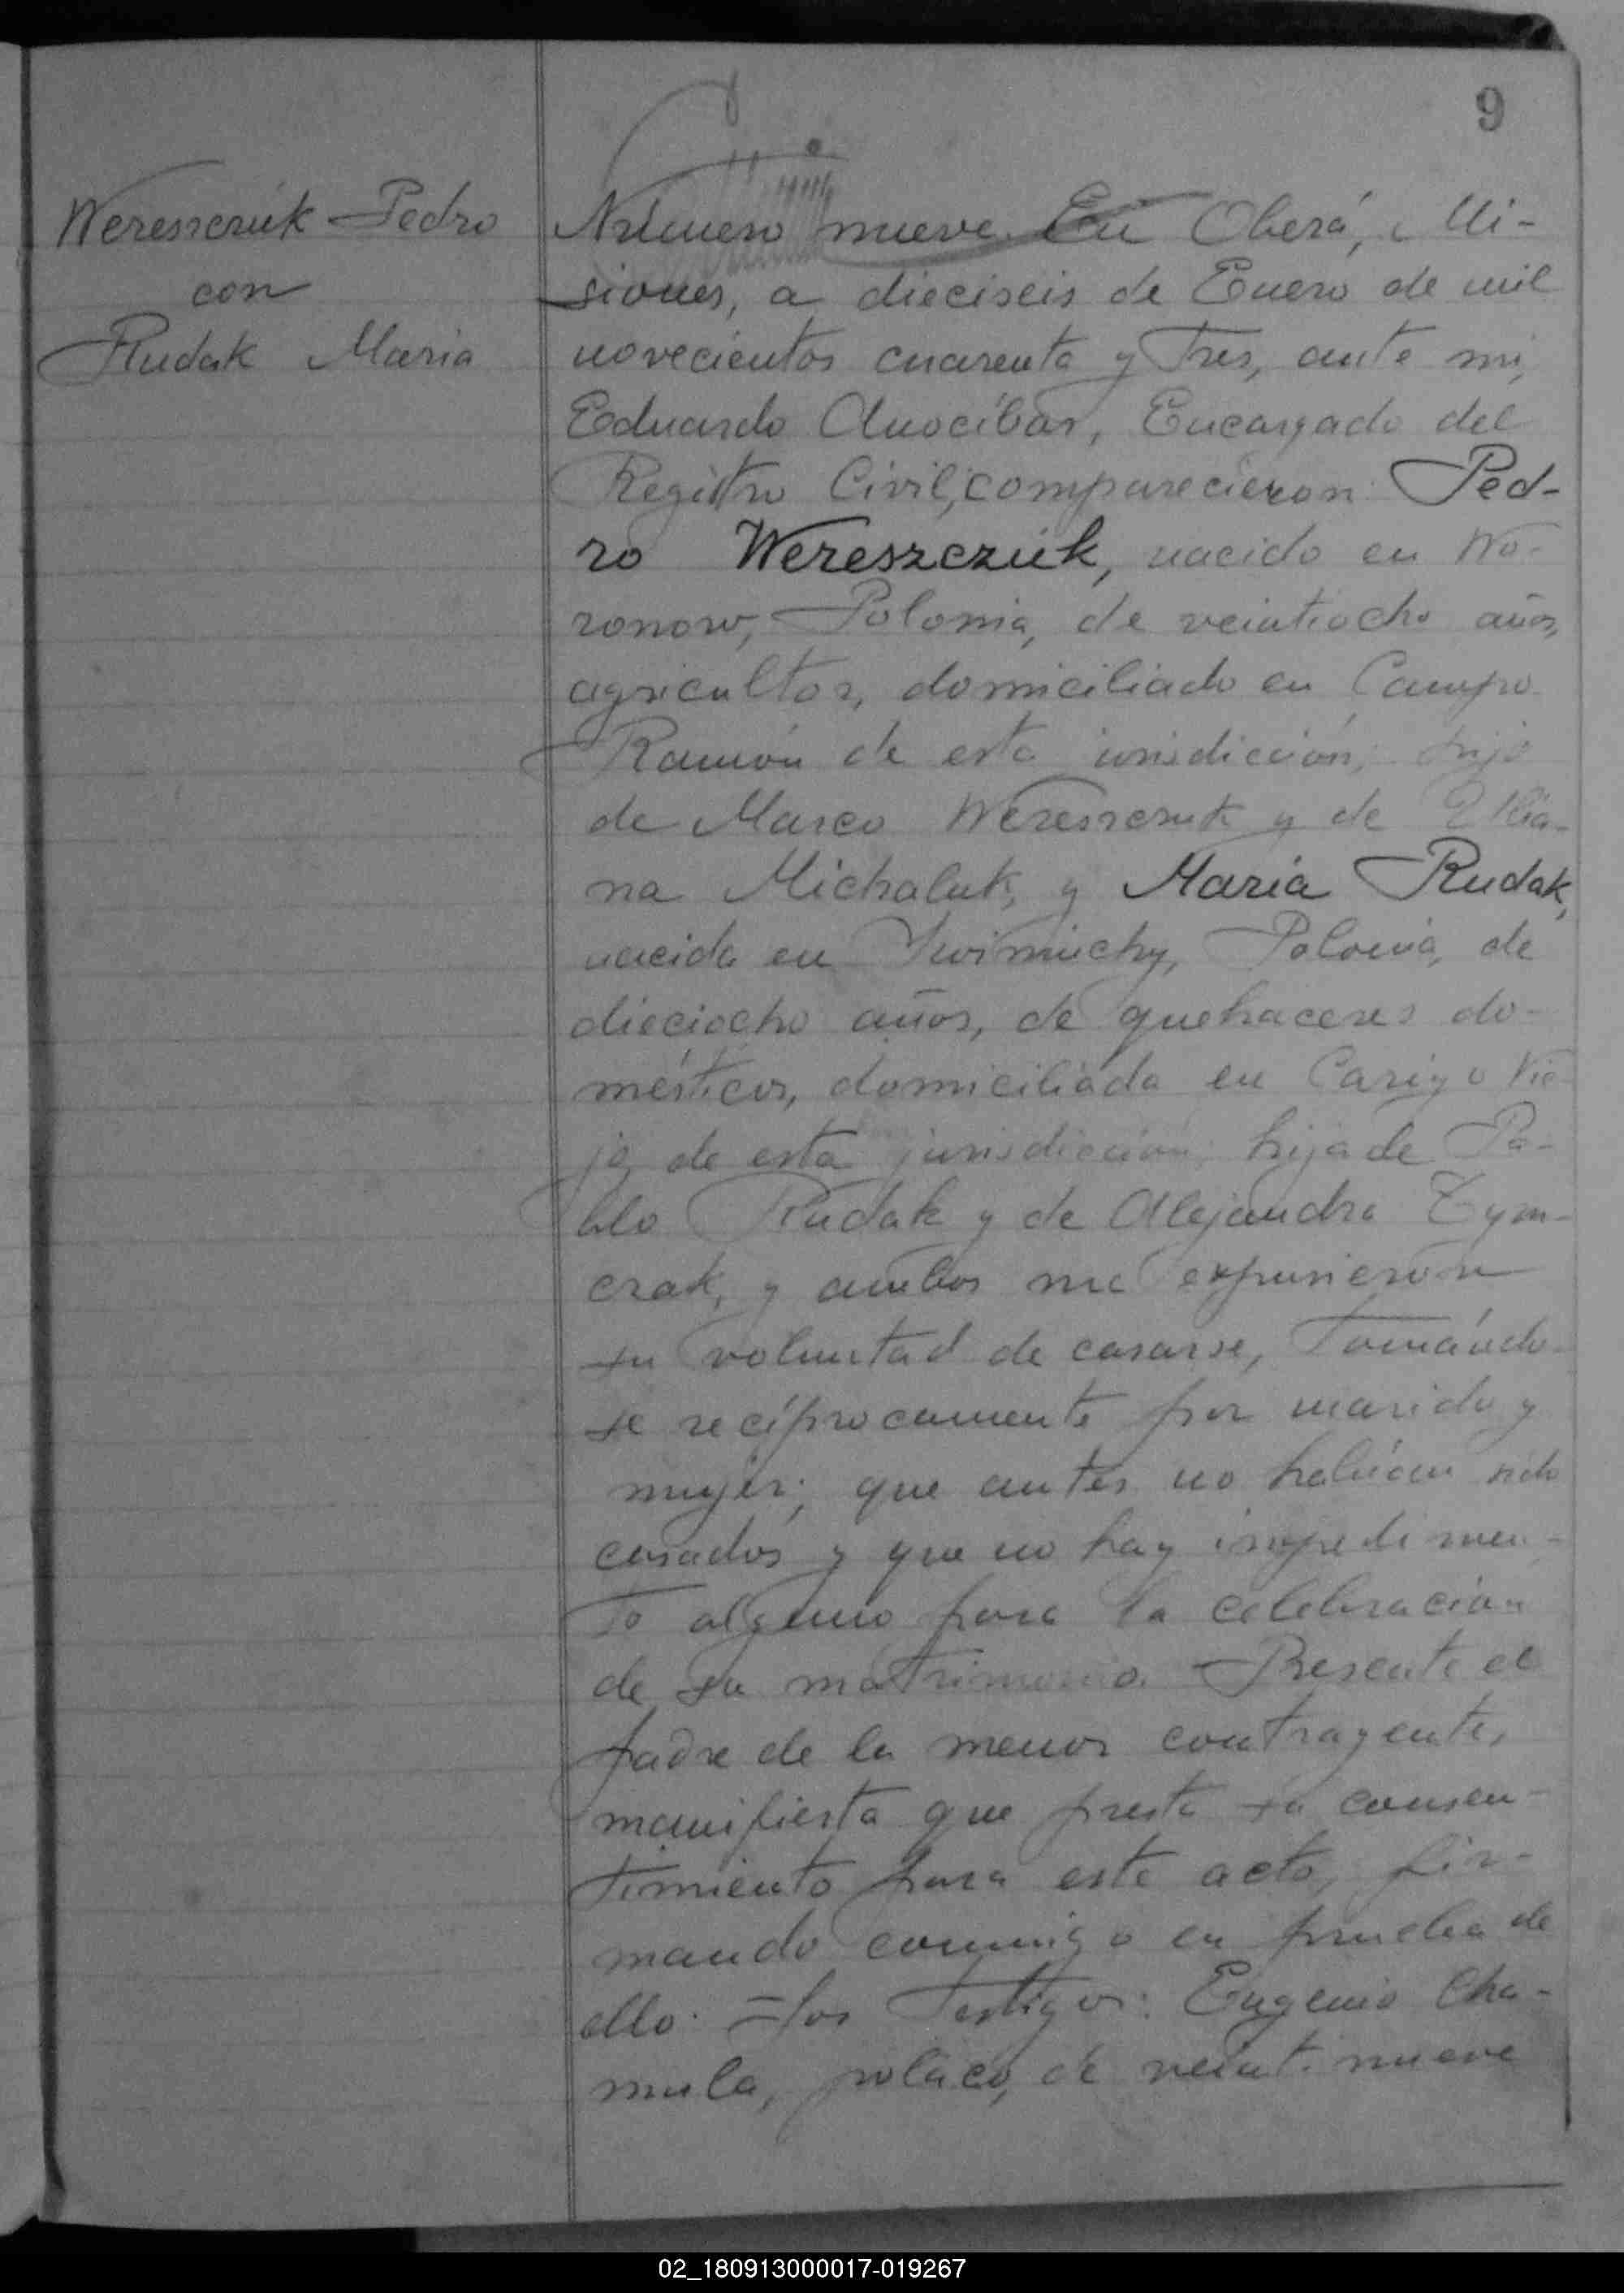 9
Wereszczuk Pedro
con
Rudak Maria
Número nueve. En Oberá, Mi-
siones, a dieciseis de Enero de mil
novecientos cuarenta y tres, ante mi,
Eduardo Anocíbar, Encargado del
Registro Civil, comparecieron: Ped-
ro Wereszczuk, nacido en Wo-
ronow, Polonia, de veintiocho años,
agricultor, domiciliado en Campo
Ramón de esta jurisdicción, hijo
de Marco Wereszczuk y de
na Michaluk, y Maria Rudak,
nacida en Polonia, de
dieciocho años, de quehaceres do-
mésticos, domiciliada en Vie-
jo, de esta jurisdicción, hija de Pa-
blo Rudak y de Alejandra Tym-
czak, y ambos me expusieron
su voluntad de casarse, tomándo-
se recíprocamente por marido y
mujer; que antes no habían sido
casados y que no hay impedimen-
to alguno para la celebración
de su matrimonio. Presente el
padre de la menor contrayente,
manifiesta que presta su consen-
timiento para este acto, fir-
mando conmigo en prueba de
ello. = los testigos: Eugenio Cha-
mula, polaco, de veintinueve
02_180913000017-019267